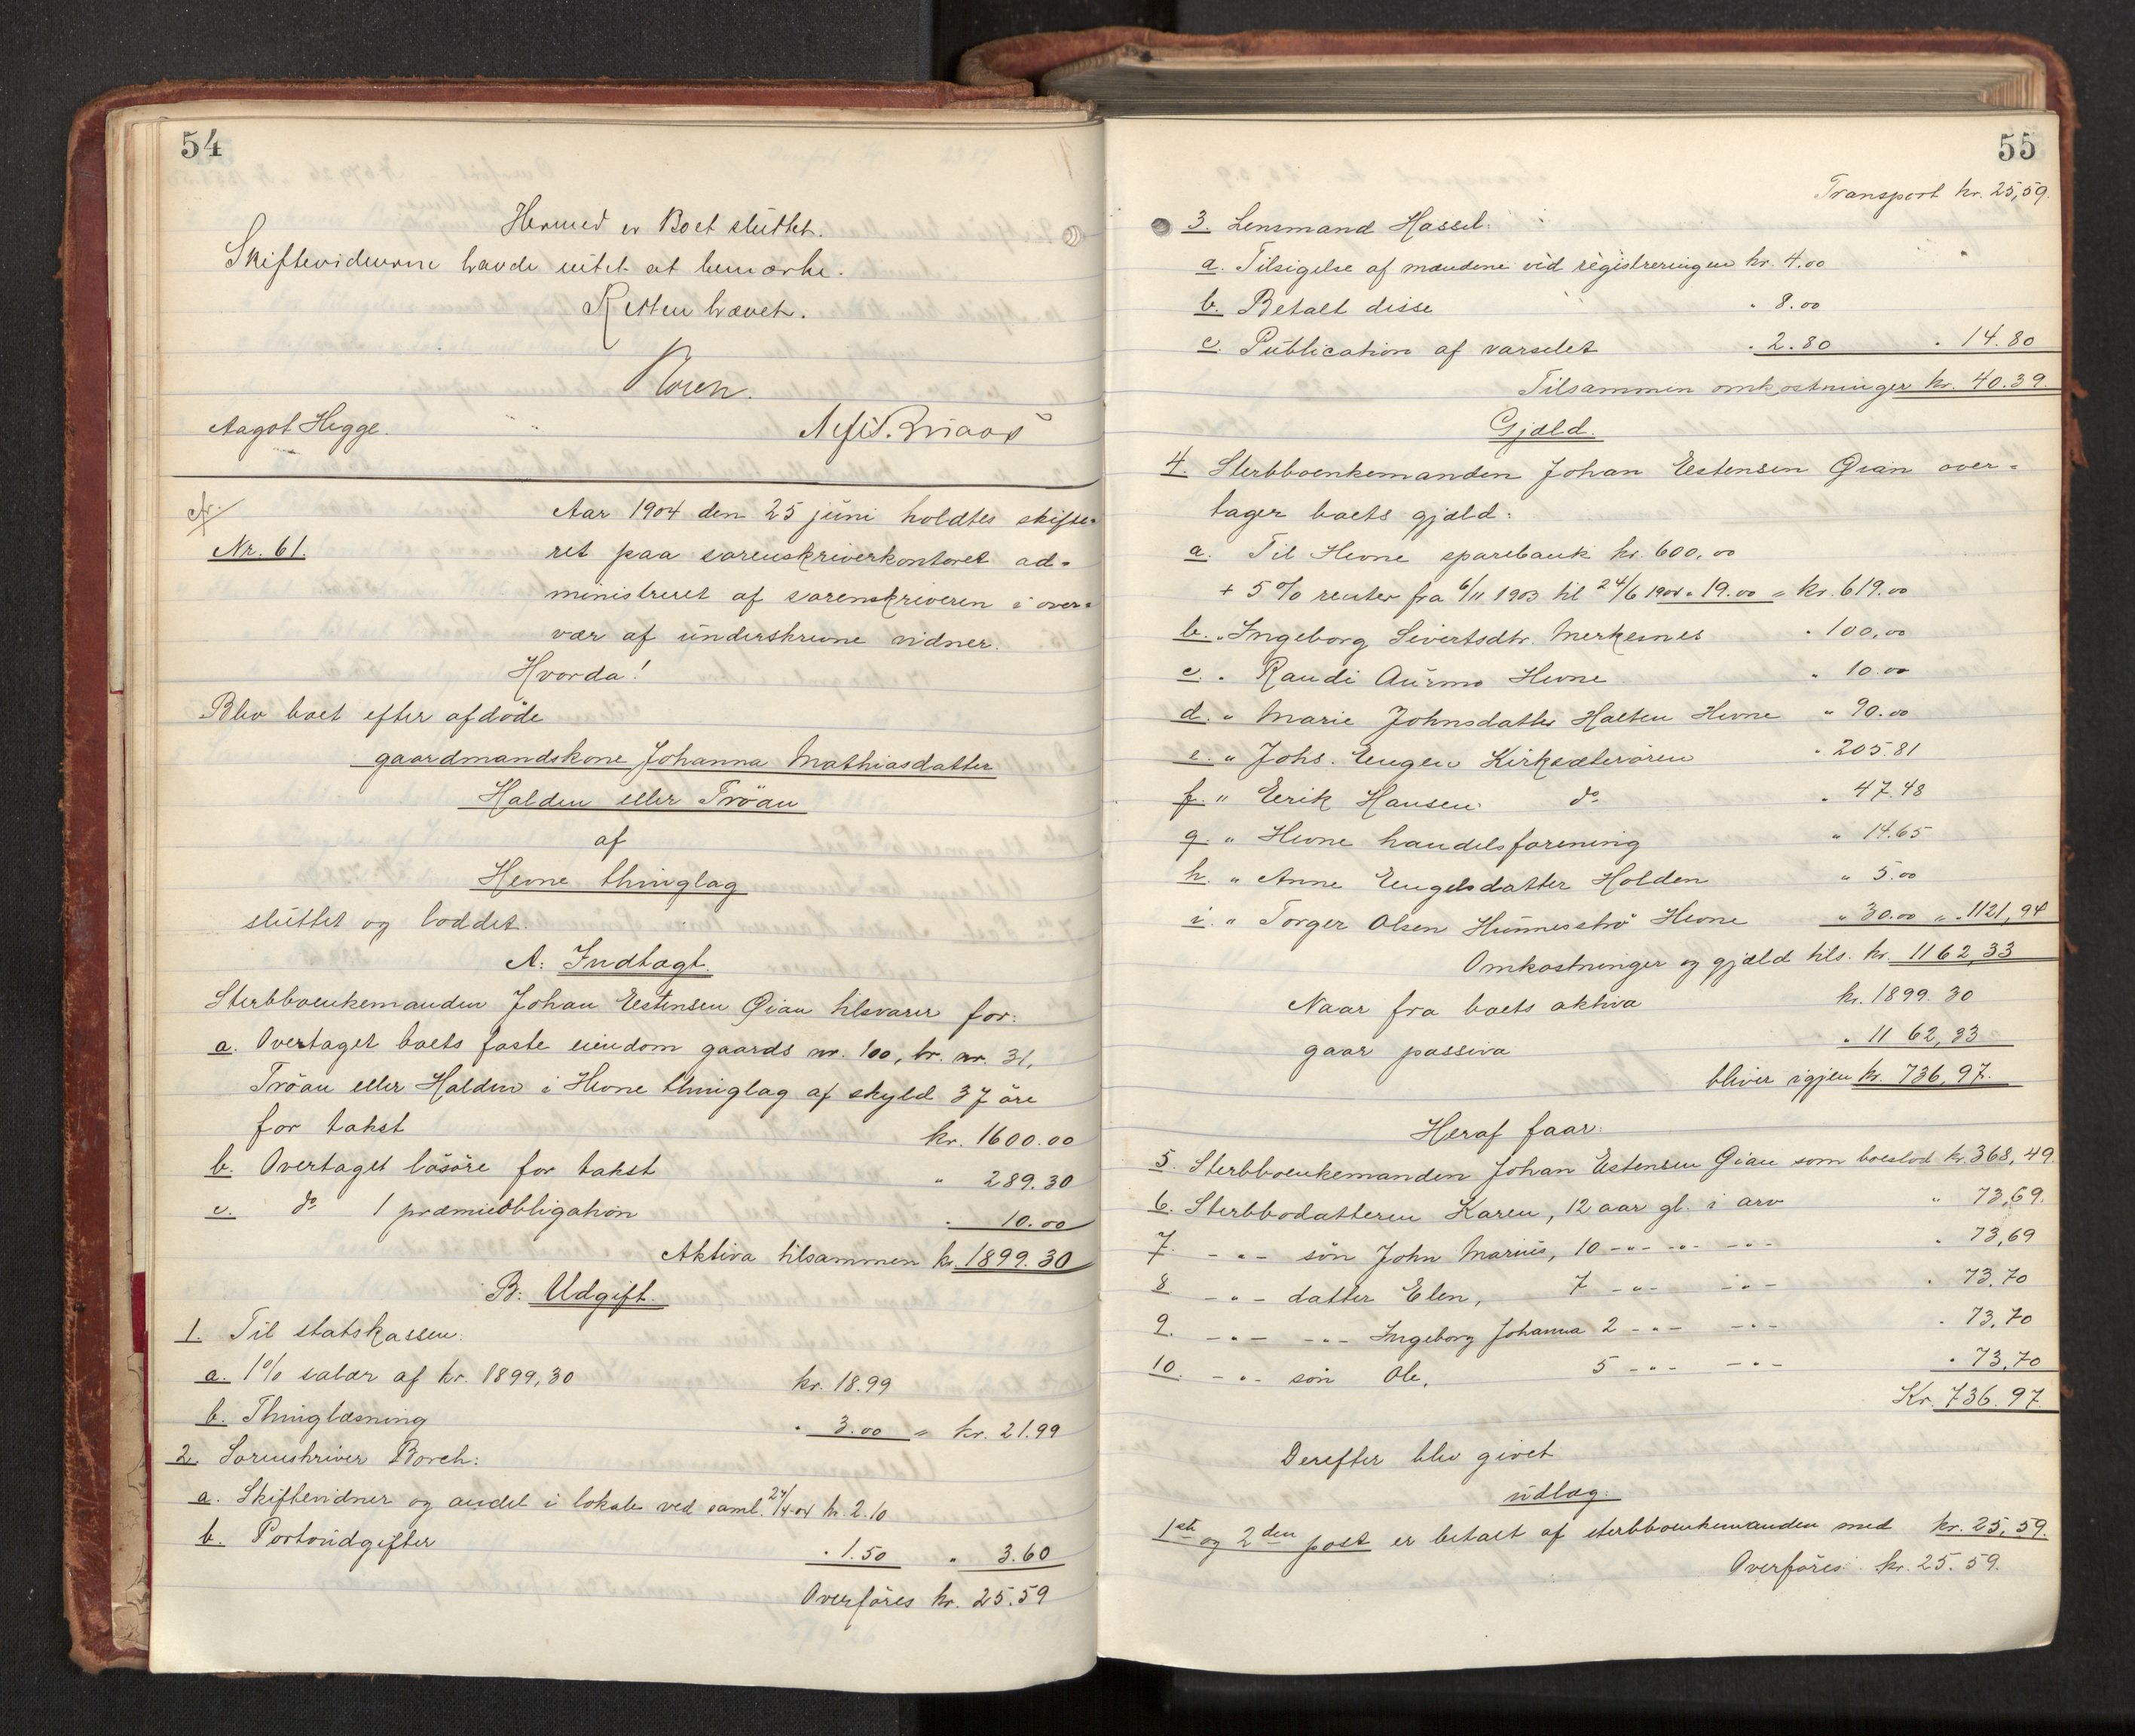 54
Hermed er Boet sluttet.
Skiftevidnerne havde intet at bemærke.
Retten hævet.
Aagot Hegge.
Nr. 61.
Aar 1904 den 25 juni holdtes skifte-
ret paa sorenskriverkontoret ad-
ministreret af sorenskriveren i over-
vær af underskrevne vidner.
Hvorda!
Blev boet efter afdøde
gaardmandskone Johanna Mathiasdatter
Halden eller Trøan
af
Hevne thinglag
sluttet og loddet.
A: Indtægt.
Sterbboenkemanden Johan Estensen Øian tilsvarer for:
a. Overtaget boets faste eiendom gaards nr. 100, br. nr. 31,
Trøan eller Halden i Hevne thinglag af skyld 37 øre
for takst kr. 1600.00
b. Overtaget løsøre for takst " 289.30
c. do 1 præmieobligation " 10.00
Aktiva tilsammen kr. 1899.30
B: Udgift.
1. Til statskassen:
a. 1% salær af kr. 1899,30 kr. 18.99
b. Thinglæsning " 3.00 = kr. 21.99
2. Sorenskriver Borch:
a. Skiftevidner og andel i lokale ved saml. 24/4-04 kr. 2.10
b. Portoudgifter " 1.50 " 3.60
Overføres kr. 25.59
55
Transport kr. 25,59.
3. Lensmand Hassel:
a. Tilsigelse af mændene ved registreringen kr. 4.00
b. Betalt disse " 8.00
c. Publication af varselet " 2.80 " 14.80
Tilsammen omkostninger kr. 40.39.
Gjæld.
4. Sterbboenkemanden Johan Estensen Øian over-
tager boets gjæld:
a. Til Hevne sparebank kr. 600,00
+ 5% renter fra 6/11 1903 til 24/6 1904 " 19.00 = kr. 619.00
b. " Ingeborg Sivertsdtr. Merkesnes " 100,00
c. " Randi Aurmo Hevne " 10.00
d. " Marie Johnsdatter Halten Hevne " 90.00
e. " Johs. Engen Kirksæterøren " 205.81
f. " Eerik Hansen do " 47.48
g. " Hevne handelsforening " 14.65
h. " Anne Engelsdatter Holden " 5.00
i. " Torger Olsen Hevne " 30.00 " 1121,94
Omkostninger og gjæld tils. kr. 1162,33
Naar fra boets aktiva kr. 1899.30
gaar passiva " 1162,33
bliver igjen kr. 736,97.
Heraf faar:
5. Sterbboenkemanden Johan Estensen Øian som boeslod kr. 368,49.
6. Sterbbodatteren Karen, 12 aar gl. i arv " 73,69.
7. -"- søn John Marius, 10 -"- -"- -"- " 73,69
8 -"- datter Elen, 7 -"- -"- " 73,70
9. -"- -"- Ingeborg Johanna 2 -"- -"- " 73,70
10. -"- søn Ole, 5 -"- -"- " 73,70
Kr. 736.97
Derefter blev givet
udlæg:
1ste og 2den post er betalt af sterbboenkemanden med kr. 25,59.
Overføres kr. 25.59.